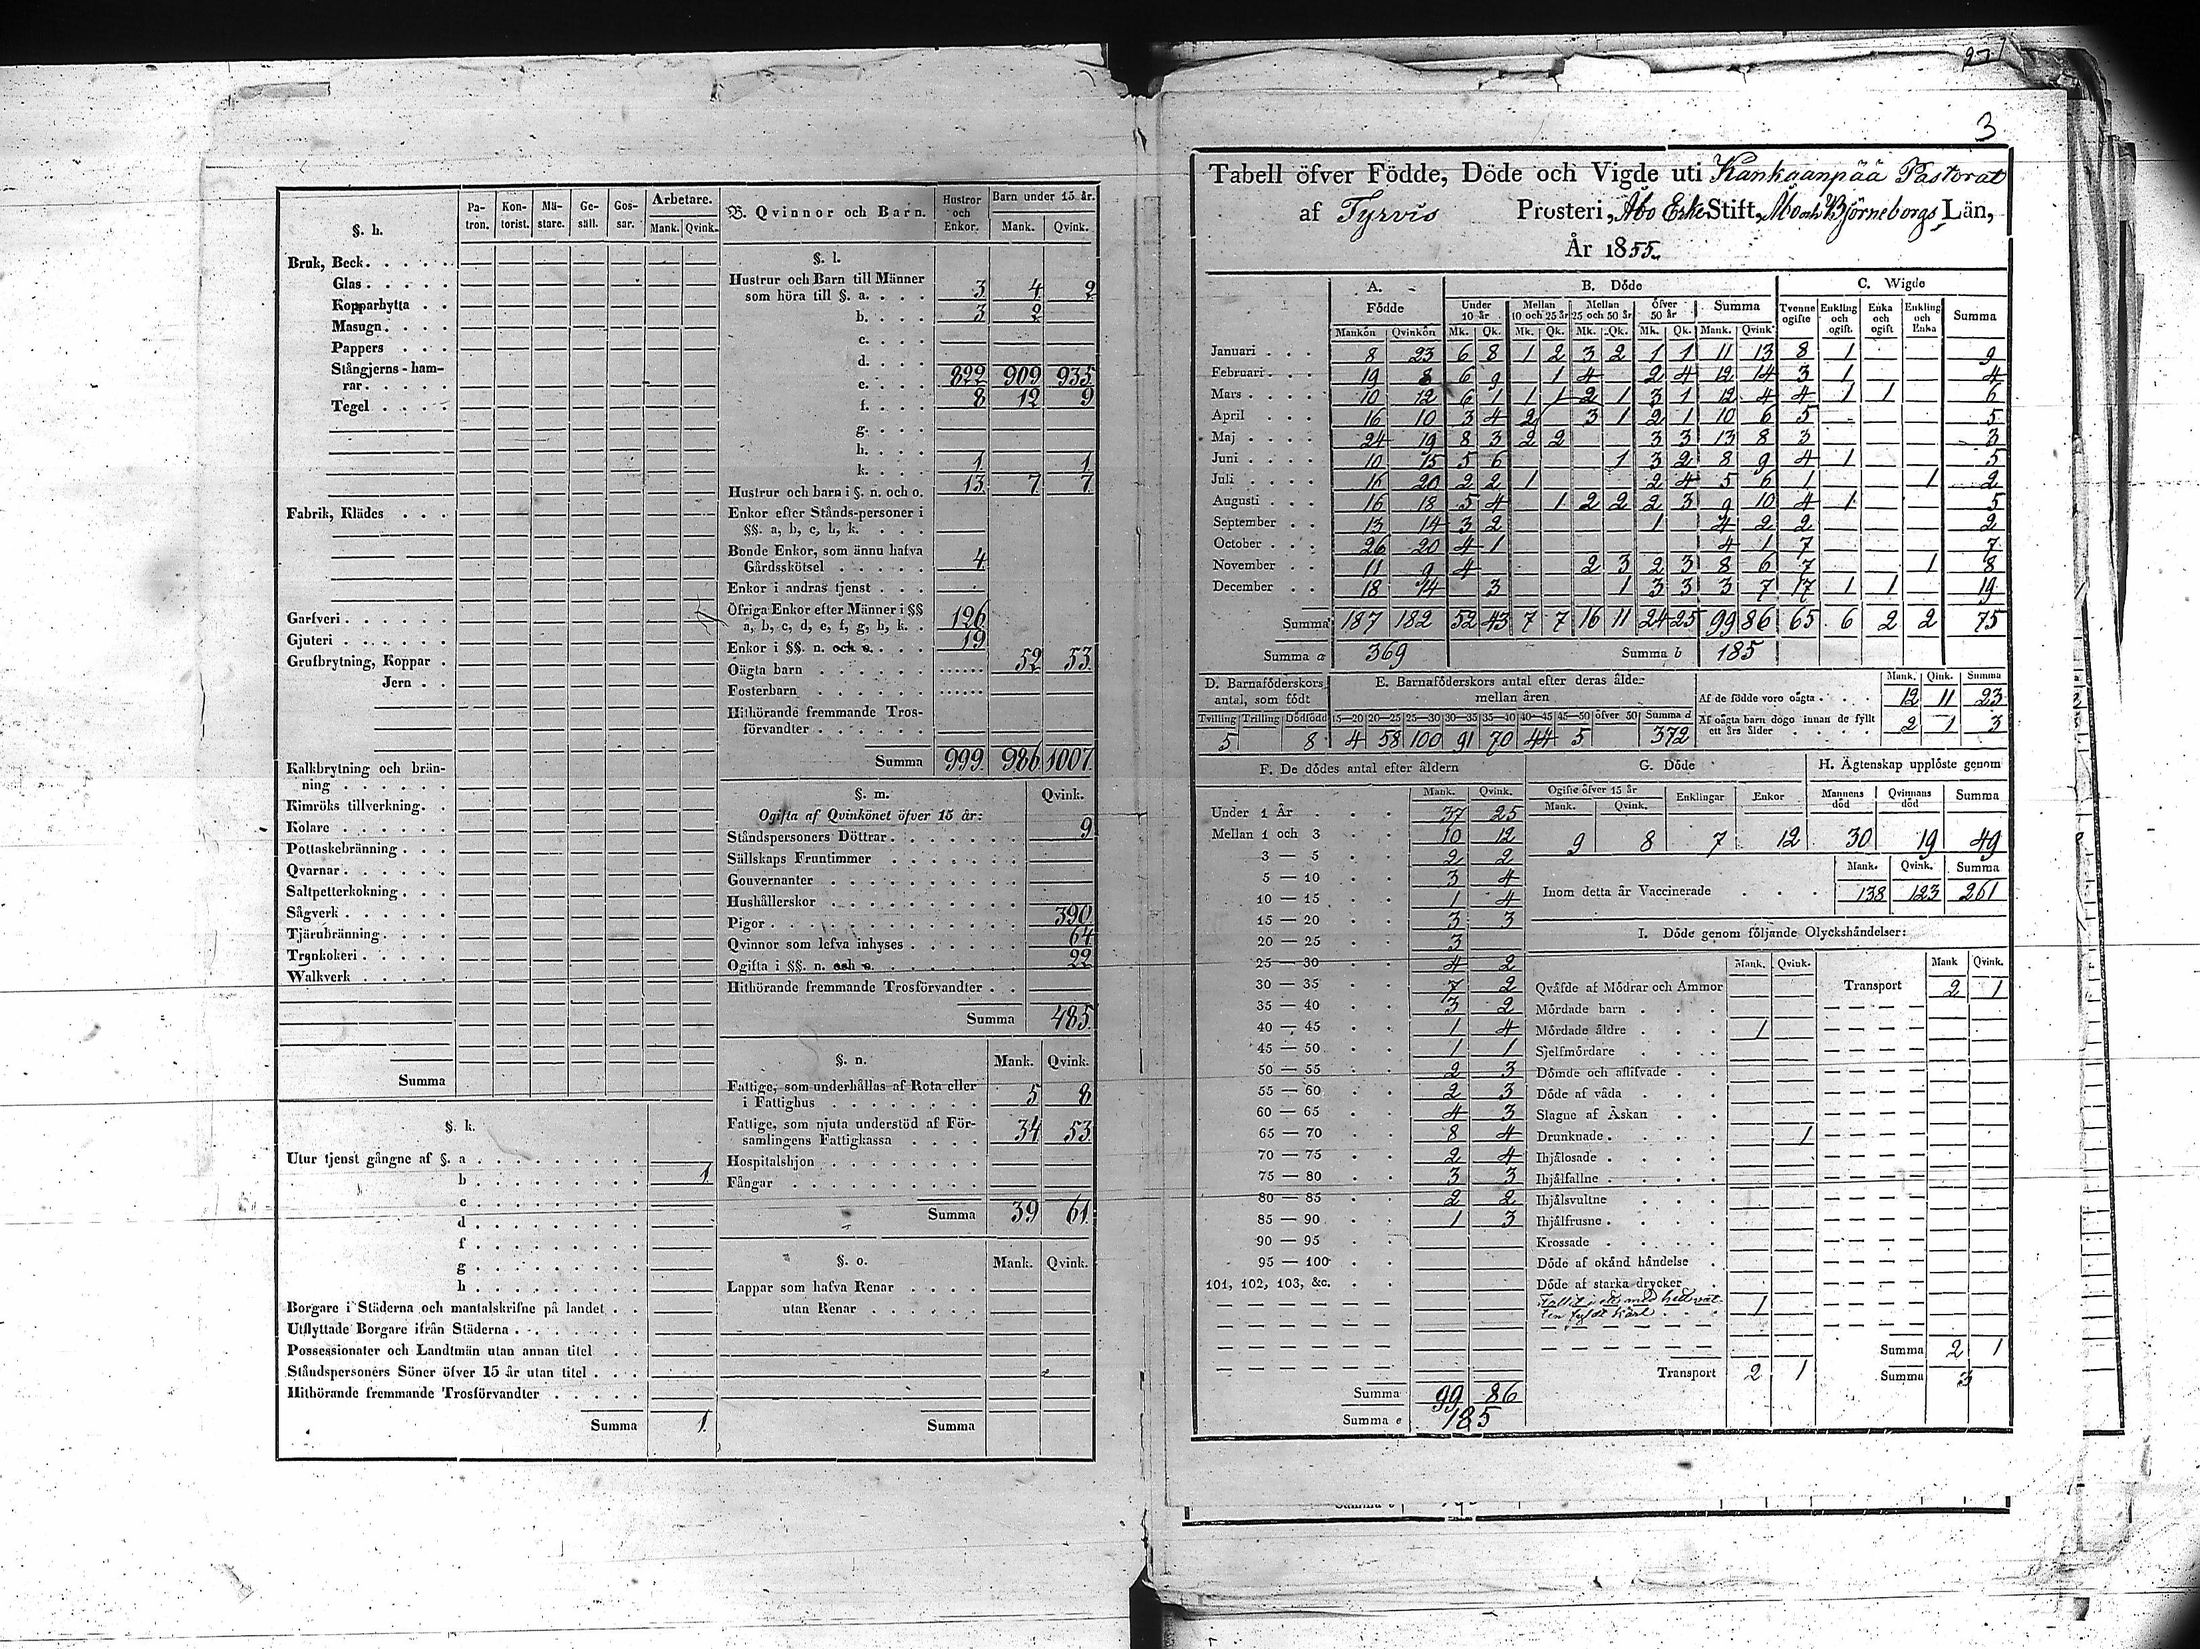 §. h. Pa-tron. Kon-torist. Mä-stare. Ge-säll. Gos-sar. Arbetare. Mank. Qvink.
Bruk, Beck
Glas
Kopparhytta
Masugn
Pappers
Stångjerns-ham-
rar
Tegel
Fabrik, Klädes
Garfveri
Gjuteri
Grufbrytning, Koppar
Jern
Kalkbrytning och brän-
ning
Kimröks tillverkning
Kolare
Pottaskebränning
Qvarnar
Saltpetterkokning
Sågverk
Tjärubränning
Trankokeri
Walkverk
Summa
§. k.
Utur tjenst gångne af §. a
b 1
c
d
f
g
h
Borgare i Städerna och mantalskrifne på landet
Utflyttade Borgare ifrån Städerna
Possessionater och Landtmän utan annan titel
Ståndspersoners Söner öfver 15 år utan titel
Hithörande fremmande Trosförvandter
Summa 1
B. Qvinnor och Barn. Hustror och Enkor. Barn under 15 år. Mank. Qvink.
§. l.
Hustrur och Barn till Männer
som höra till §. a. 3 4 2
b. 3 2
c.
d.
e. 822 909 935
f. 8 12 9
g.
h.
k. 1 1
Hustrur och barn i §. n. och o. 13 7 7
Enkor efter Stånds-personer i
§§. a, b, c, h, k.
Bonde Enkor, som ännu hafva
Gårdsskötsel 4
Enkor i andras tjenst
Öfriga Enkor efter Männer i §§
a, b, c, d, e, f, g, h, k. 126
Enkor i §§. n. och o. 19
Oägta barn 52 53
Fosterbarn
Hithörande fremmande Tros-
förvandter
Summa 999 986 1007
§. m. Qvink.
Ogifta af Qvinkönet öfver 15 år:
Ståndspersoners Döttrar 9
Sällskaps Fruntimmer
Gouvernanter
Hushållerskor
Pigor 390
Qvinnor som lefva inhyses 64
Ogifta i §§. n. och o. 22
Hithörande fremmande Trosförvandter
Summa 485
§. n. Mank. Qvink.
Fattige, som underhållas af Rota eller
i Fattighus 5 8
Fattige, som njuta understöd af För-
samlingens Fattigkassa 34 53
Hospitalshjon
Fångar
Summa 39 61
§. o. Mank. Qvink.
Lappar som hafva Renar
utan Renar
Summa
3
Tabell öfver Födde, Döde och Vigde uti Kankaanpää Pastorat
af Tyrvis Prosteri, Åbo Erke Stift, Åbo och Björneborgs Län,
År 1855.
A. Födde B. Döde C. Wigde
Under 10 år Mellan 10 och 25 år Mellan 25 och 50 år öfver 50 år Summa Tvenne ogifte Enkling och ogift. Enka och ogift Enkling och Enka Summa
Mankön Qvinkön Mk. Qk. Mk. Qk. Mk. Qk. Mk. Qk. Mank. Qvink.
Januari 8 23 6 8 1 2 3 2 1 1 11 13 8 1 9
Februari 19 8 6 9 1 4 2 4 12 14 3 1 4
Mars 10 12 6 1 1 1 2 1 3 1 12 4 4 1 1 6
April 16 10 3 4 2 3 1 2 1 10 6 5 5
Maj 24 19 8 3 2 2 3 3 13 8 3 3
Juni 10 15 5 6 1 3 2 8 9 4 1 5
Juli 16 20 2 2 1 2 4 5 6 1 1 2
Augusti 16 18 5 4 1 2 2 2 3 9 10 4 1 5
September 13 14 3 2 1 4 2 2 2
October 26 20 4 1 4 1 7 7
November 11 9 4 2 3 2 3 8 6 7 1 8
December 18 14 3 1 3 3 3 7 17 1 1 19
Summa 187 182 52 43 7 7 16 11 24 25 99 86 65 6 2 2 75
Summa a 369 Summa b 185
D. Barnaföderskors antal, som födt
Tvilling Trilling Dödfödd
5 8
E. Barnaföderskors antal efter deras ålder mellan åren
15—20 20—25 25—30 30—35 35—40 40—45 45—50 öfver 50 Summa d
4 58 100 91 70 44 5 372
Mank. Qink. Summa
Af de födde voro oägta 12 11 23
Af oägta barn dogo innan de fyllt
ett års ålder 2 1 3
F. De dödes antal efter åldern
Mank. Qvink.
Under 1 År 37 25
Mellan 1 och 3 10 12
3 — 5 2 2
5 — 10 3 4
10 — 15 1 4
15 — 20 3 3
20 — 25 3
25 — 30 4 2
30 — 35 7 2
35 — 40 3 2
40 — 45 1 4
45 — 50 1 1
50 — 55 2 3
55 — 60 2 3
60 — 65 4 3
65 — 70 8 4
70 — 75 2 4
75 — 80 3 3
80 — 85 2 2
85 — 90 1 3
90 — 95
95 — 100
101, 102, 103, &c.
Summa 99 86
Summa e 185
G. Döde
Ogifte öfver 15 år Mank. Qvink. Enklingar Enkor
9 8 7 12
H. Ägtenskap upplöste genom
Mannens död Qvinnans död Summa
30 19 49
Mank. Qvink. Summa
Inom detta år Vaccinerade 138 123 261
I. Döde genom följande Olyckshändelser:
Mank. Qvink.
Qväfde af Mödrar och Ammor
Mördade barn
Mördade äldre 1
Sjelfmördare
Dömde och aflifvade
Döde af våda
Slagne af Åskan
Drunknade 1
Ihjälosade
Ihjälfallne
Ihjälsvultne
Ihjälfrusne
Krossade
Döde af okänd händelse
Döde af starka drycker
Fallit i ett med hett vat-
ten fyldt kärl 1
Transport 2 1
Mank Qvink.
Transport 2 1
Summa 2 1
Summa 3